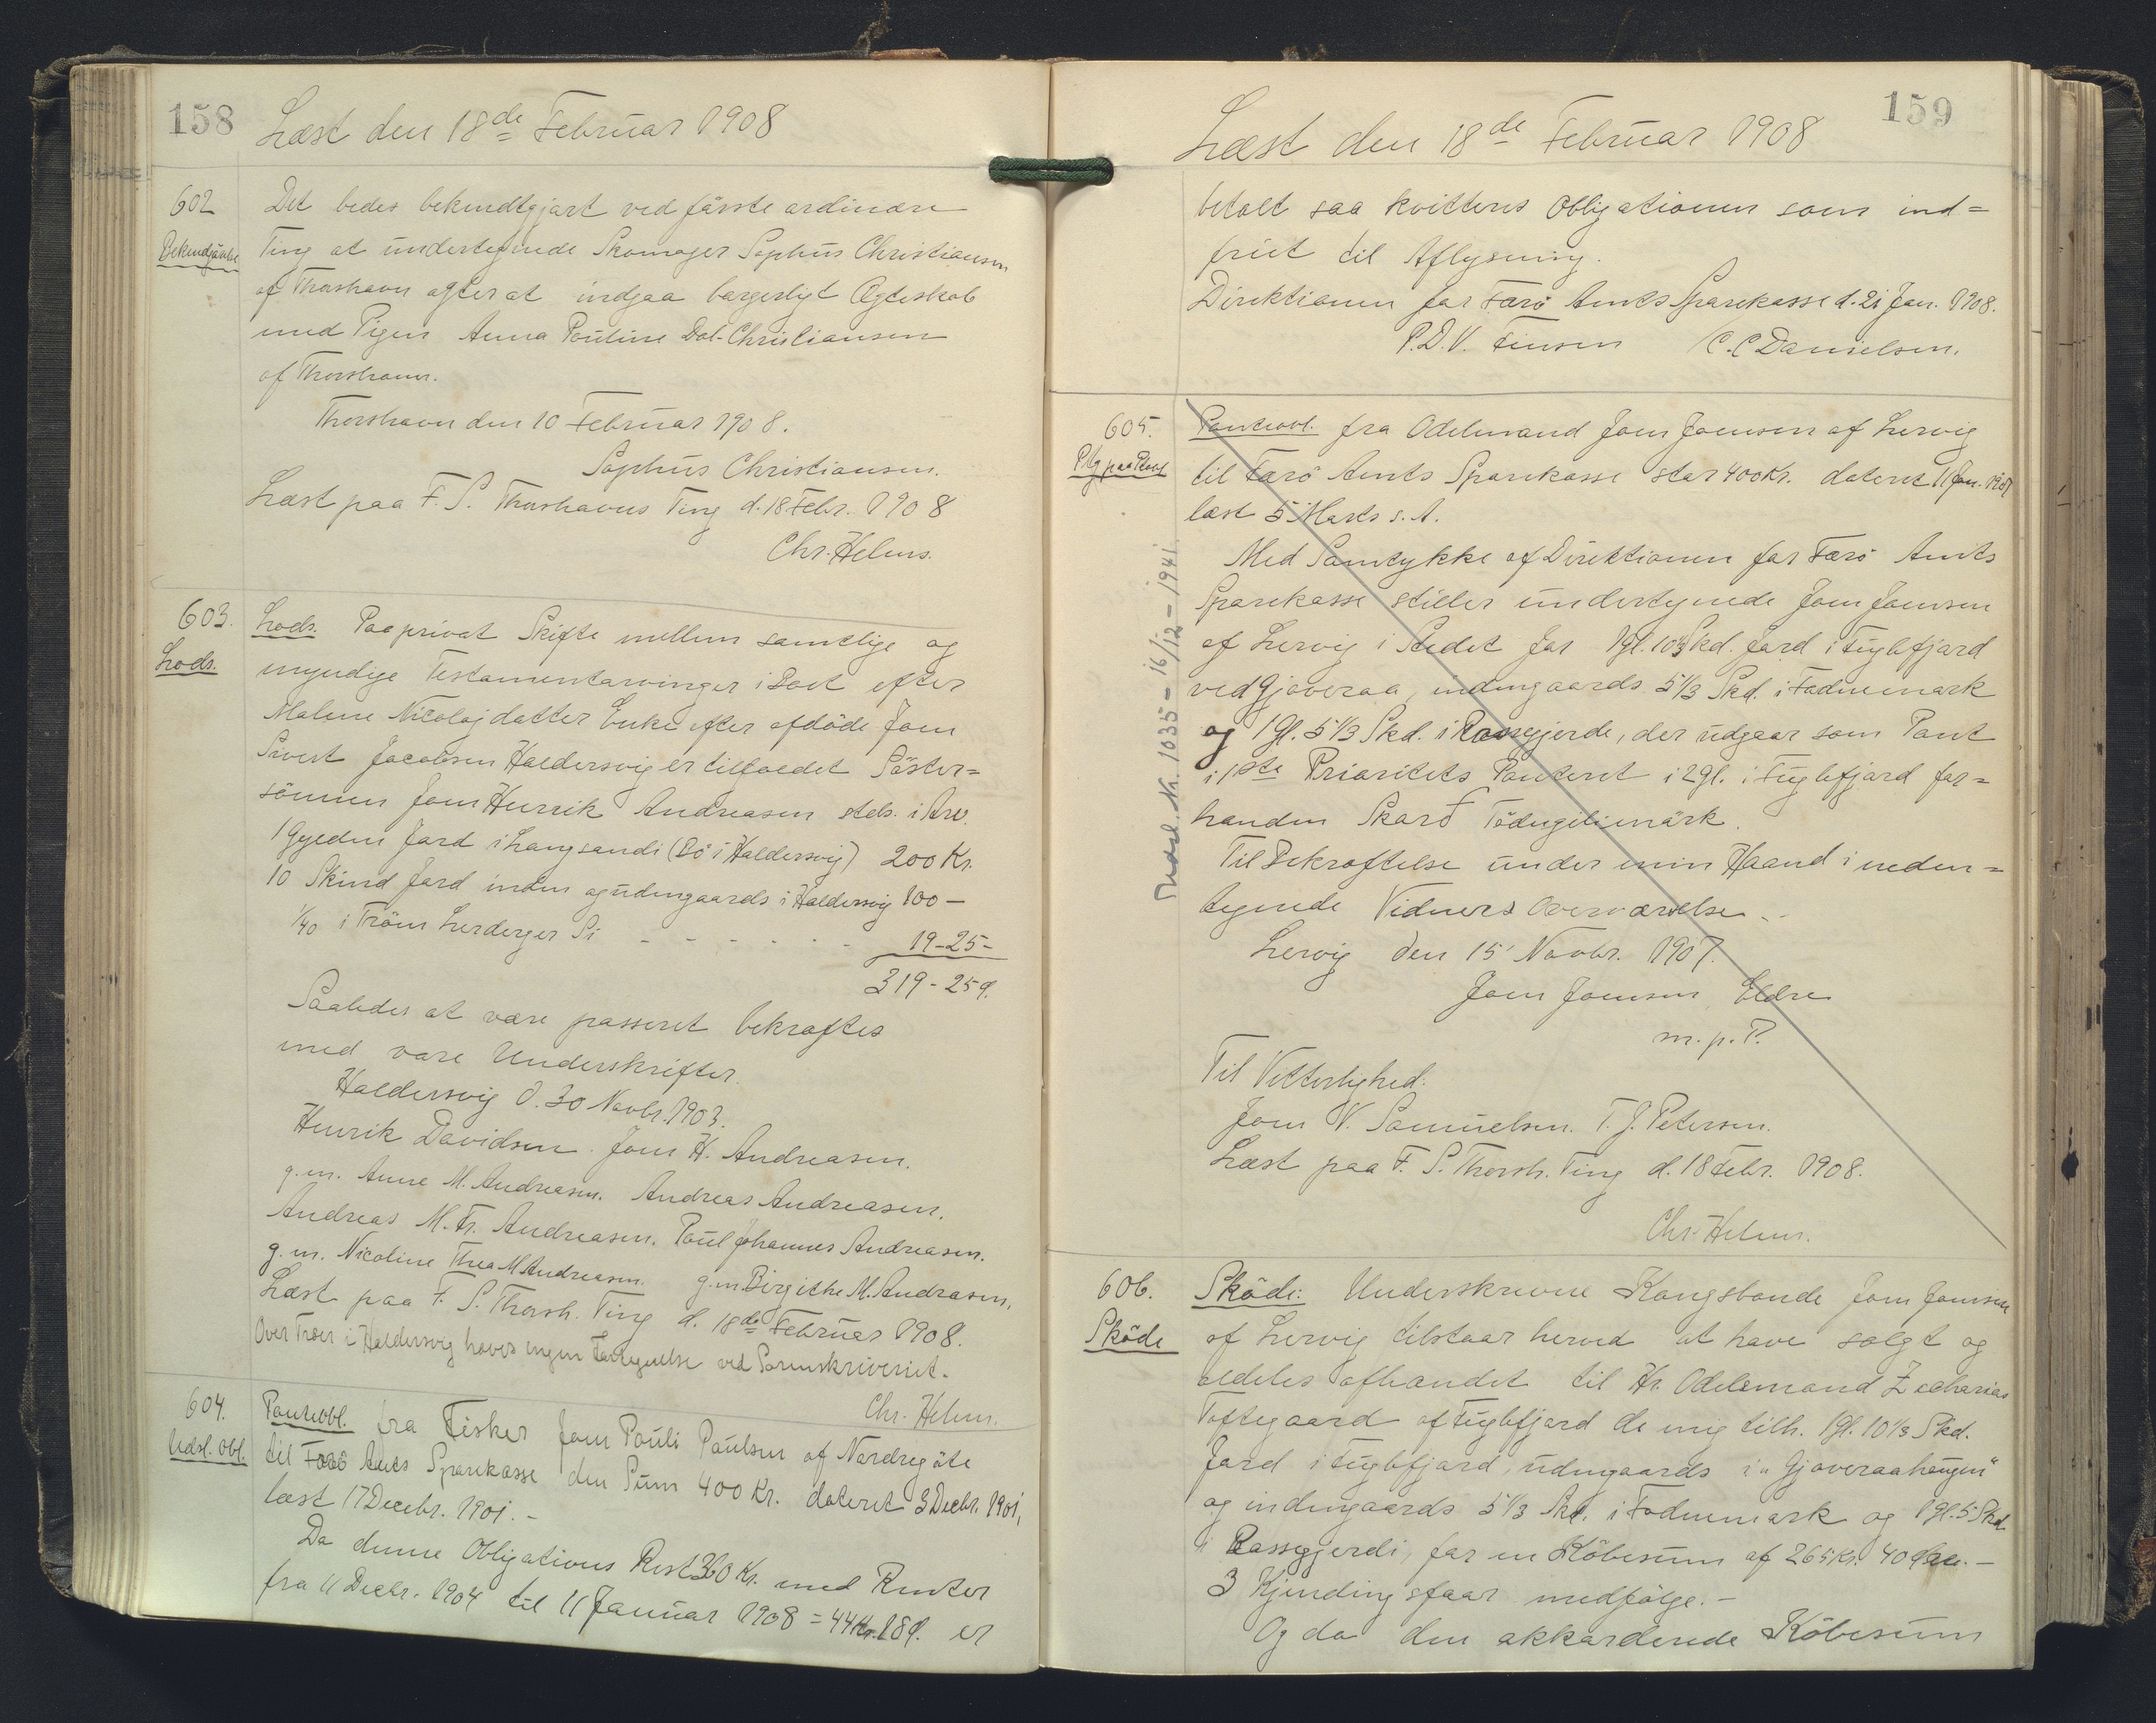 158
Læst den 18de Februar 1908
602
Bekendgørelse
Det bedes bekendtgjort ved første ordinære
Ting at undertegnede Skomager Sophus Christiansen
af Thorshavn agter at indgaa borgerligt Ægteskab
med Pigen Anna Pouline Dal-Christiansen
af Thorshavn.
Thorshavn den 10 Februar 1908.
Sophus Christiansen.
Læst paa F. S. Thorshavns Ting d. 18 Febr. 1908
Chr. Helms.
603.
Lods.
Lods. Paa privat Skifte mellem samtlige og
myndige Testamentarvinger i Boet efter
Malene Nicolajdatter Enke efter afdöde Joen
Sivert Jacobsen Haldersvig er tilfaldet Söster=
sönnen Joen Henrik Andreasen steds. i Arv.
1 Gylden Jord i Langsandi (Bö i Haldersvig) 200 Kr.
10 Skind Jord inden og udengaards i Haldersvig 100 —
1/40 i Tröm Lerderger Si - - - - - - 19-25-
319-25 Ø.
Saaledes at være passeret bekræftes
med vore Underskrifter.
Haldersvig d. 30 Novbr. 1903.
Henrik Davidsen. Joen H. Andreasen.
g.m. Anne M. Andreasen. Andreas Andreasen.
Andreas M. Fr. Andreasen. Poul Johannes Andreasen.
g.m. Nicoline Thea M Andreasen. g.m Birgithe M. Andreasen,
Læst paa F. S. Thorsh. Ting d. 18de Februar 1908.
Over Træer i Haldersvig haves ingen Fortegnelse ved Sorenskriveriet.
Chr. Helms.
604.
Udsl. Obl.
Panteobl. fra Fisker Joen Pouli Poulsen af Nordregöte
til Færö Amts Sparekasse den Sum 400 Kr. dateret 3 Decbr. 1901,
læst 17 Decebr. 1901. -
Da denne Obligations Rest 360 Kr. med Renter
fra 11 Decbr. 1904 til 11 Januar 1908 = 44 Kr. 18 Ø. er
159
Læst den 18de Februar 1908
betalt saa kvitteres Obligationen som ind=
friet til Aflysning.
Direktionen for Færö Amts Sparekasse d. 21 Jan. 1908.
P.D.V. Finsen C.C Danielsen.
605.
Panteobl. fra Odelsmand Joen Joensen af Lervig
til Færö Amts Sparekasse stor 400 Kr. dateret 11 Jan. 1907
læst 5 Marts s. A.
Med Samtykke af Direktionen for Færö Amts
Sparekasse stiller undertegnede Joen Joensen
af Lervig i Stedet for 1 gl. 10 1/3 Skd. Jord i Fuglefjord
ved Gjoveraa, indengaards 5 1/3 Skd. i Fodnemark
og 1 gl. 5 1/3 Skd. i Rossegjerde, der udgaar som Pant
i 1ste Prioritets Panteret i 2 gl. i Fuglefjord for=
handen Skard Tödugilimörk.
Til Bekræftelse under min Haand i neden=
tegnede Vidners Overværelse. -
Lervig den 15 Novbr. 1907.
Joen Joensen, Eldre
m. p. P.
Til Vitterlighed.
Joen N. Samuelsen. T. J. Petersen.
Læst paa F. S. Thorsh. Ting d. 18 Febr. 1908.
Chr. Helms.
Nr. 1035 - 16/12 - 1941
606.
Sköde
Sköde: Underskrevne Kongsbonde Joen Joensen
af Lervig tilstaar herved at have solgt og
aldeles afhændet til Hr. Odelsmand Zacharias
Toftegaard af Fuglefjord de mig tilh. 1 gl. 10 1/3 Skd.
Jord i Fuglefjord, udengaards i "Gjoveraahaugen"
og indengaards 5 1/3 Skd. i Fodnemark og 1 gl. 5 Skd.
i Rassegjerdi, for en Köbesum af 265 Kr. 40 Øre. -
3 Kjendingsfaar medfölge. -
Og da den akkorderede Köbesum